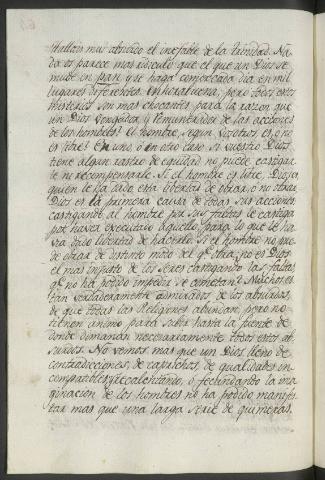 Hallais muy absurdo el inefable de la trinidad. Na-
da os parece mas ridiculo que el que un Dios se
mude en pan, y se haga comer cada dia en mil
lugares diferentes. Enhorabuena, pero todos estos
misterios son mas chocantes para la razon que
un Dios vengador y remunerador de las acciones
de los hombres? El hombre, segun vosotros es, ó no
es libre? En uno, ó en otro caso si vuestro Dios
tiene algun rastro de equidad no puede castigar-
le ni recompensarle. Si el hombre es libre, Dios es
quien le ha dado esta libertad de obrar, ó no obrar
Dios es la primera causa de todas sus acciones
castigando al hombre por sus faltas le castiga
por haver executado aquello para lo que le ha-
via dado libertad de hacerlo. Si el hombre no pue-
de obrar de distinto modo del qᵉ obra, no es Dios
el mas injusto de los seres castigando las faltas
qᵉ no ha podido impedir se cometan? Muchos es-
tan verdaderamente admirados de los absurdos,
de que todas las Religiones abundan, pero no
tienen animo para subir hasta la fuente de
donde dimanan necesariamente todos estos ab-
surdos. No vemos mas que un Dios lleno de
contradicciones, de caprichos, de qualidades in-
compatibles, y recalentando, ó fecundando la ima-
ginacion de los hombres no ha podido manifes-
tar mas que una larga serie de quimeras.